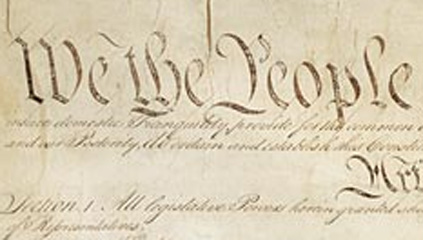 We the People
insure domestic Tranquility, provide for the common
and our Posterity, do ordain and establish this Const
Art
Section. 1. All legislative Powers herein granted sha
of Representatives.